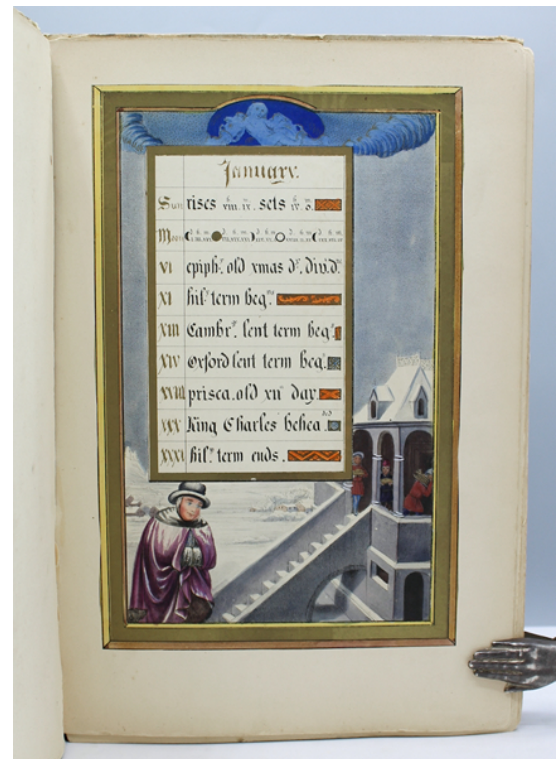 January.
Sun rises viii. ix. sets iv. 
Moon
VI epiph: old xmas dy. div. dn.
XI hily. term begns.
XIII Cambre. lent term begs.
XIV Oxford lent term begs.
XVIII prisca. old xii day.
XXX King Charles behea.ded
XXXI hily. term ends.